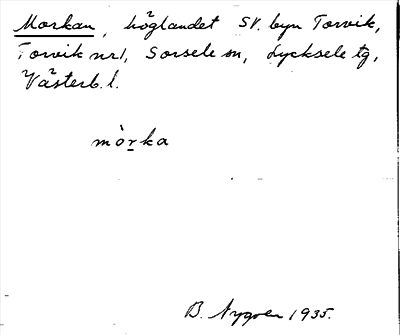 Morkan, höglandet SV. byn Torvik,
Torvik nr 1, Sorsele sn, Lycksele tg,
Västerb. l.
mòrka
B. Nygren 1935.